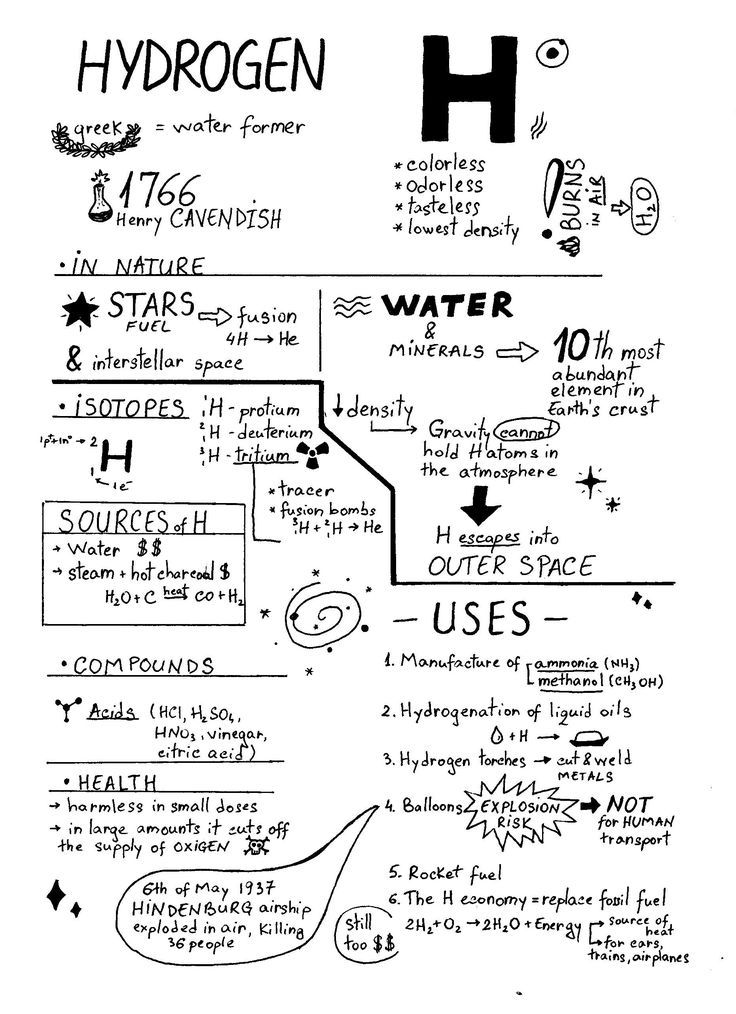 HYDROGEN
H
greek = water former
1766
Henry CAVENDISH
* colorless
* odorless
* tasteless
* lowest density
! BURNS
IN AIR
⇨ H₂O
• iN NATURE
STARS
FUEL
⇨ fusion
4H → He
& interstellar space
WATER
&
MiNERALS ⇨ 10th most
abundant
element in
Earth's crust
• iSOTOPES
1p⁺+1n⁰ → 2
H
1
← 1e⁻
¹₁H - protium
²₁H - deuterium
³₁H - tritium
* tracer
* fusion bombs
³₁H + ²₁H → He
↓ density
→ Gravity cannot
hold H atoms in
the atmosphere
H escapes into
OUTER SPACE
SOURCES of H
→ Water $$
→ steam + hot charcoal $
H₂O + C heat→ CO + H₂
• COMPOUNDS
Acids (HCl, H₂SO₄,
HNO₃, vinegar,
citric acid)
• HEALTH
→ harmless in small doses
→ in large amounts it cuts off
the supply of OXiGEN
6th of May 1937
HiNDENBURG airship
exploded in air, killing
36 people
- USES -
1. Manufacture of ammonia (NH₃)
methanol (CH₃OH)
2. Hydrogenation of liquid oils
+ H →
3. Hydrogen torches → cut & weld
METALS
4. Balloons EXPLOSiON
RiSK
➡ NOT
for HUMAN
transport
5. Rocket fuel
6. The H economy = replace fossil fuel
still
too $$
2H₂ + O₂ → 2H₂O + Energy → source of
heat
→ for cars,
trains, airplanes